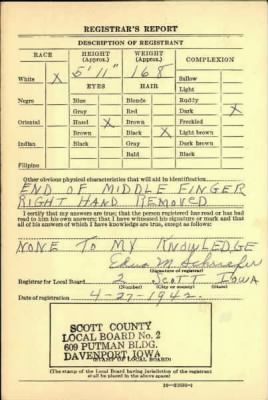 REGISTRAR'S REPORT
DESCRIPTION OF REGISTRANT
RACE HEIGHT (Approx.) WEIGHT (Approx.) COMPLEXION
5' 11" 168
White X Sallow
EYES HAIR Light
Negro Blue Blonde Ruddy
Gray Red Dark X
Oriental Hazel X Brown Freckled
Brown Black X Light brown
Indian Black Gray Dark brown
Bald Black
Filipino
Other obvious physical characteristics that will aid in identification
END OF MIDDLE FINGER
RIGHT HAND REMOVED
I certify that my answers are true; that the person registered has read or has had
read to him his own answers; that I have witnessed his signature or mark and that
all of his answers of which I have knowledge are true, except as follows:
NONE TO MY KNOWLEDGE
Edna M.
(Signature of registrar)
Registrar for Local Board 2 Scott Iowa
(Number) (City or county) (State)
Date of registration 4-27-1942.
SCOTT COUNTY
LOCAL BOARD No. 2
609 PUTMAN BLDG.
DAVENPORT, IOWA
(STAMP OF LOCAL BOARD)
(The stamp of the Local Board having jurisdiction of the registrant
shall be placed in the above space)